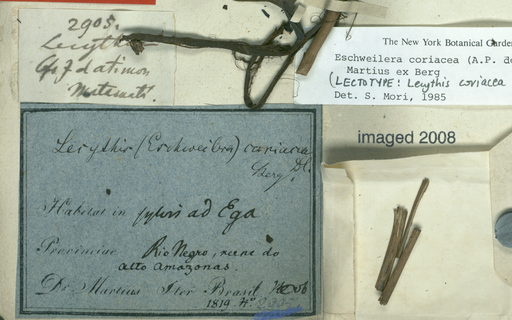 2905.
Lecythis
The New York Botanical Garde
Eschweilera coriacea (A.P. de
Martius ex Berg
(LECTOTYPE: Lecythis coriacea
Det. S. Mori, 1985
imaged 2008
Lecythis (Eschweilera) coriacea
Berg DC.
Habitat in sylvis ad Ega
Provinciae Rio Negro, nunc do
alto Amazonas.
Dr. Martius Iter Brasil
1819. No. 2905.